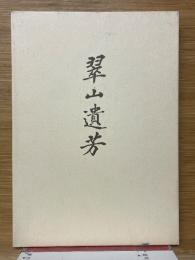 翠山遺芳